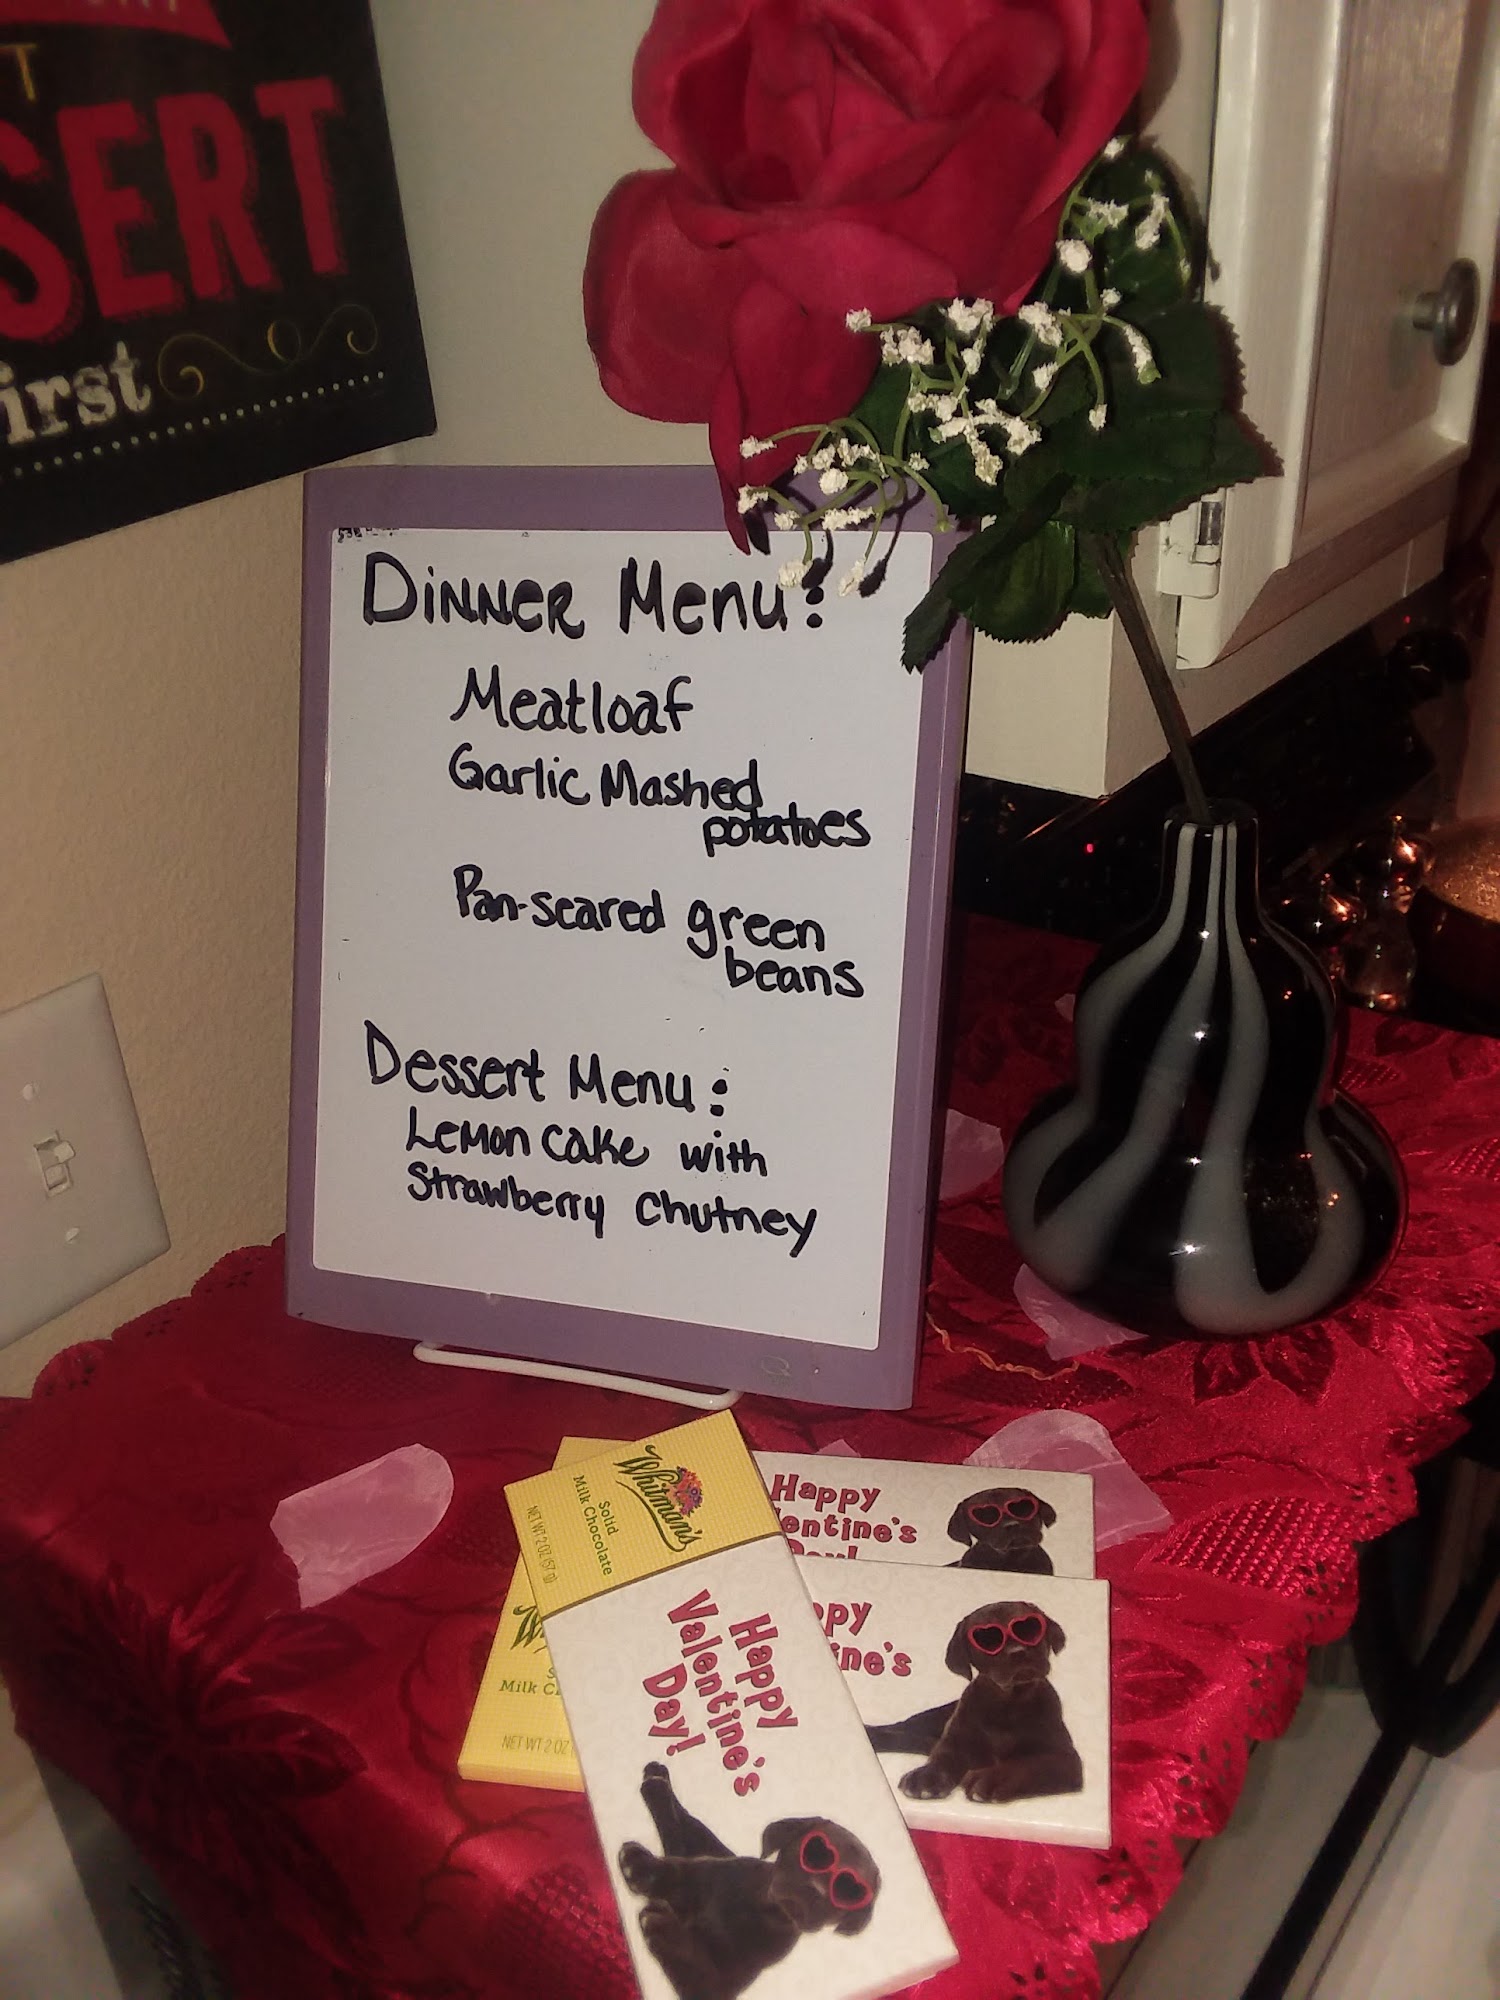 SERT
irst
Dinner Menu:
Meatloaf
Garlic Mashed
potatoes
Pan-seared green
beans
Dessert Menu:
Lemon cake with
Strawberry Chutney
Whitman's
Solid
Milk Chocolate
NET WT 2 OZ (57 g)
Happy
Valentine's
Day!
Happy
entine's
Day!
ppy
ine's
Milk C
NET WT 2 OZ